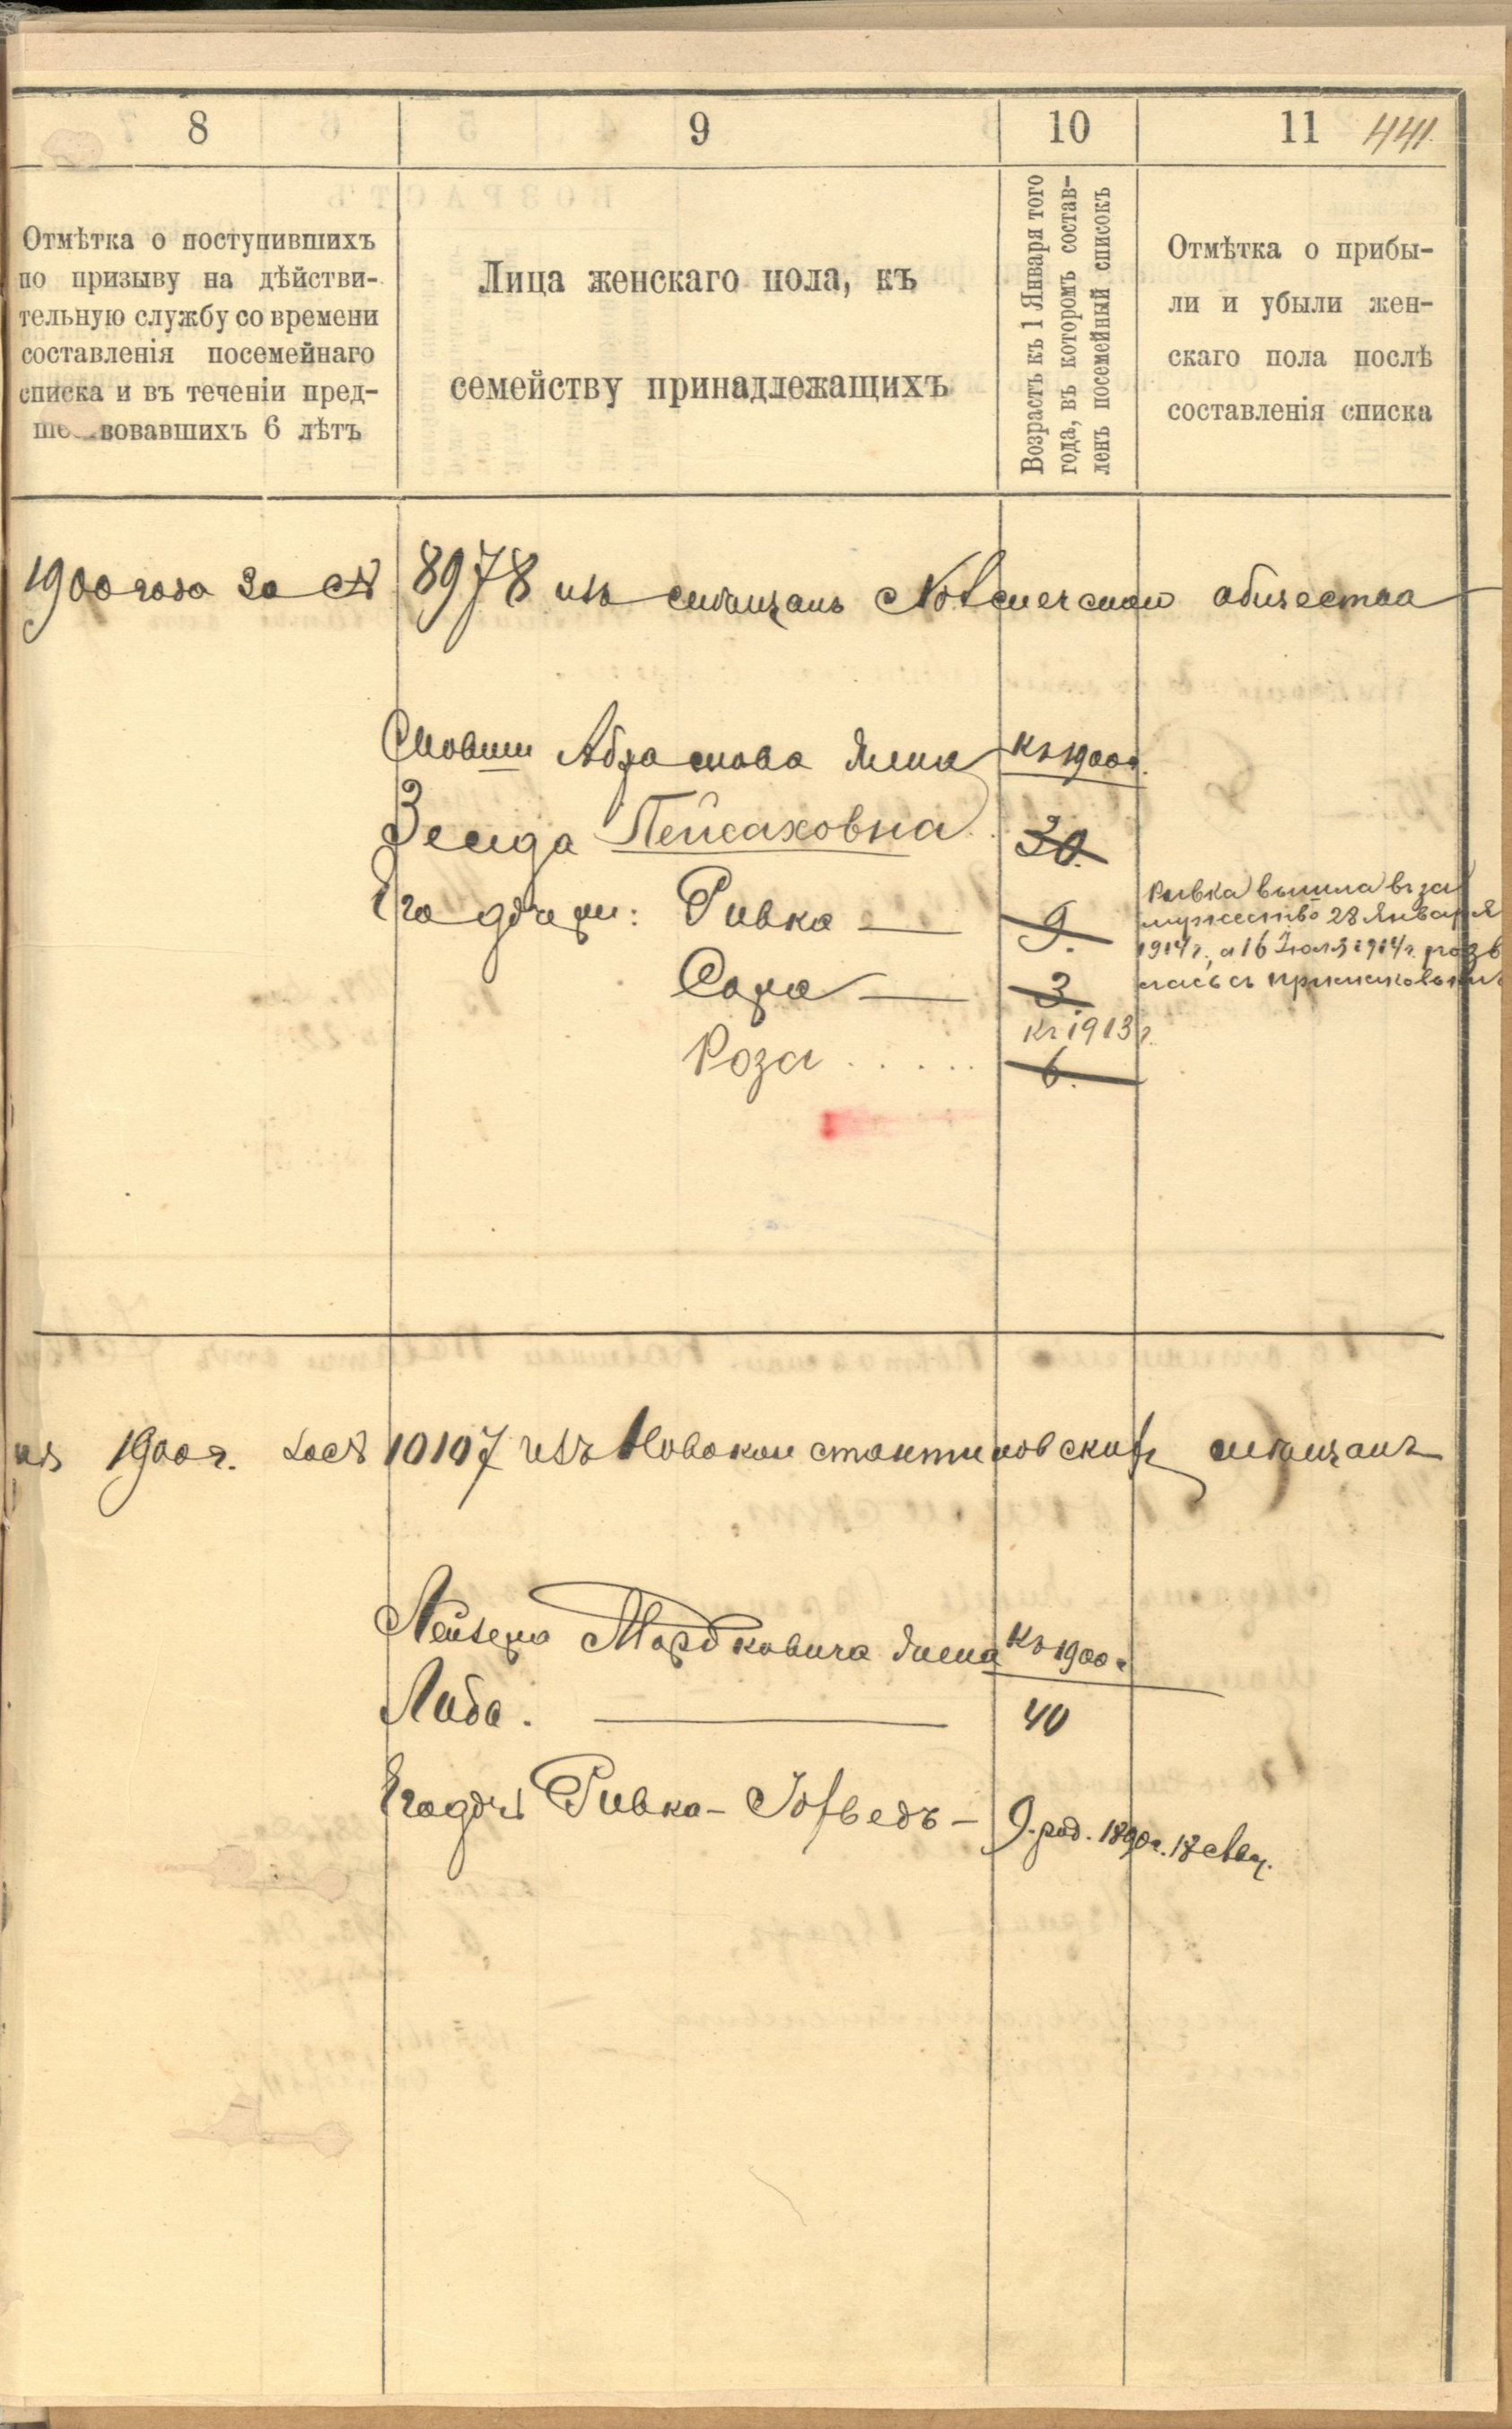 8
9
10
11
441.
Отмѣтка о поступившихъ
по призыву на дѣйстви-
тельную службу со времени
составленія посемейнаго
списка и въ теченіи пред-
вовавшихъ 6 лѣтъ
Лица женскаго пола, къ
семейству принадлежащихъ
Возрастъ къ 1 Января того
года, въ которомъ состав-
ленъ посемейный списокъ
Отмѣтка о прибы-
ли и убыли жен-
скаго пола послѣ
составленія списка
1900 года за № 8978 изъ мѣщанъ общества
Абрамова жена къ 1900 г.
Зелда Пейсаховна 30.
Его дочери: Ривка — 9.
Сара — 3.
къ 1913 г.
Роза . . . . . 6.
Ривка вышла въ за
мужество 28 Января
1914 г., а 16 Іюля 1914 г. разв
лась съ
1900 г. за № 10107 изъ Новоконстантиновскихъ мѣщанъ
Лейзера Мордковича жена къ 1900 г.
Либа. — 40
Его дочь Ривка - Іохведъ - 9. род. 1890 г. 18